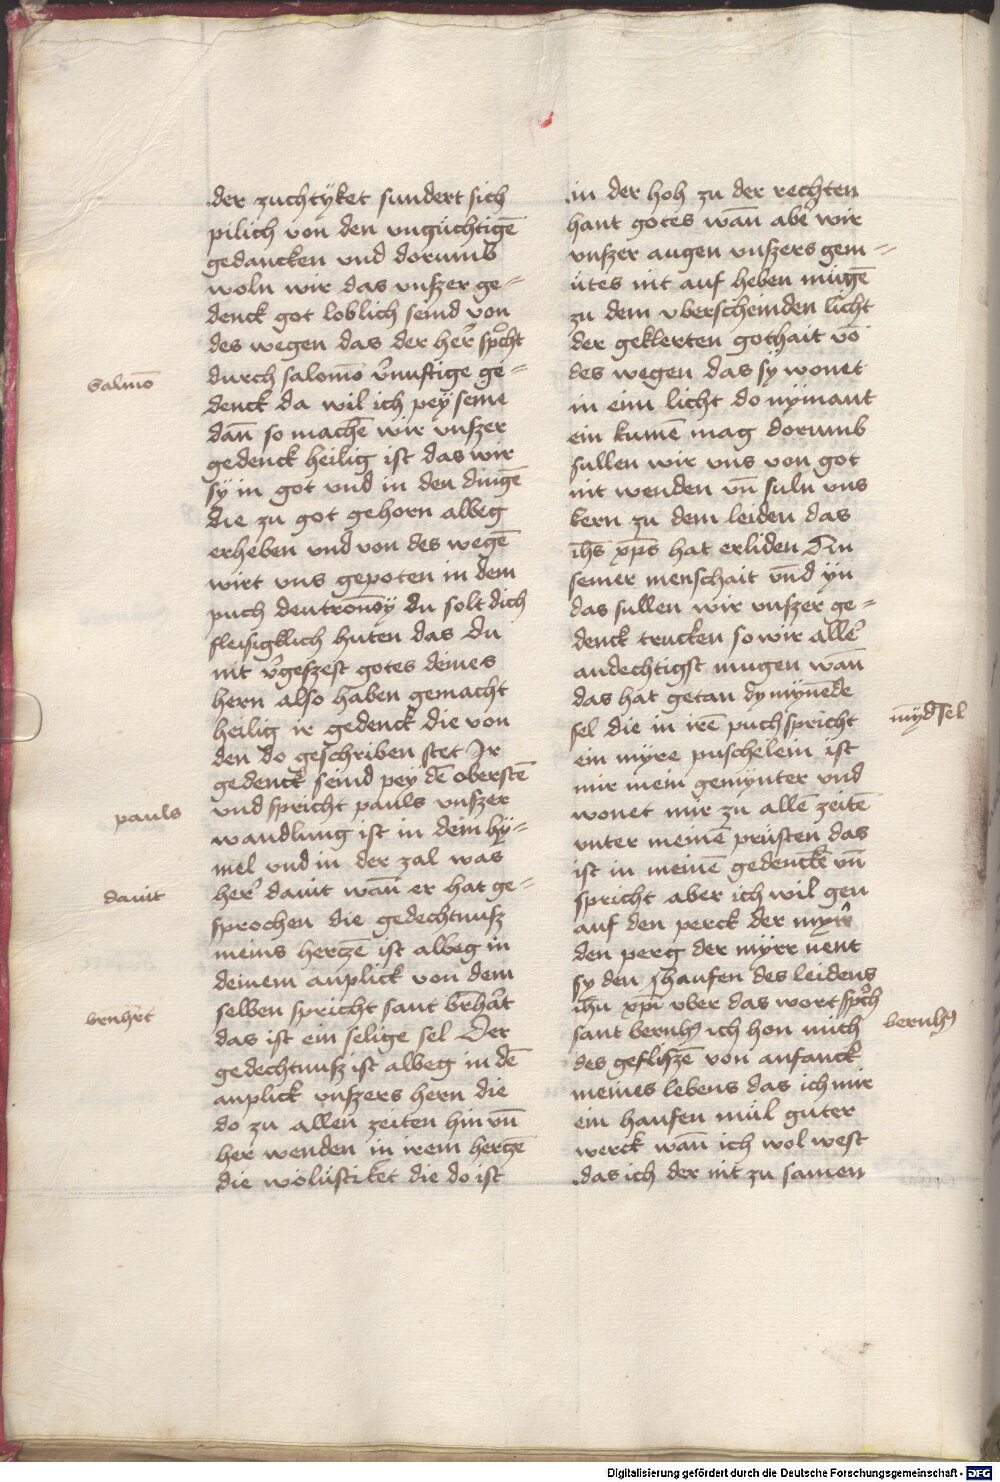 der zuchtyket sundert sich
pilich von den vnzüchtigē
gedancken vnd dorumb
woln wir das vnszer ge=
denck got loblich seind von
des wegen das der her spͥcht
durch salomō v̄nunftige ge=
denck da wil ich pey seine
dañ so machē wir vnszer
gedenck heilig ist das wir
sÿ in got vnd in den dingē
die zu got gehorn albeg
erheben vnd von des wegē
wirt vns gepoten in dem
puch deutronōÿ du solt dich
fleisigklich huten das du
nit v̄geszest gotes deines
hern also haben gemacht
heilig ir gedenck die von
den do geschriben stet Ir
gedenck seind pey dē oberstē
vnd spricht pauls vnszer
wandlung ist in dem hÿ=
mel vnd in der zal was
her̄ dauit wañ er hat ge=
sprochen die gedechtnusz
meins hertzē ist albeg in
deinem anplick von dem
selben spricht sant br̄hāt
das ist ein selige sel Der
gedechtnusz ist albeg in dē
anplick vnszers hern die
do zu allen zeiten hin vñ
her wenden in irem hertzē
die wolüstiket die do ist
Salmō
pauls
dauit
brnhr̄t
in der hoh zu der rechten
hant gotes wañ abē wir
vnszer augen vnszers gem=
ütes nit auf heben mügē
zu dem vberscheinden licht
der geklerten gothait vō
des wegen das sÿ wonet
in eim licht do nÿmant
ein kumē mag dorumb
sullen wir vns von got
nit wenden vñ suln vns
kern zu dem leiden das
ih̄s xp̄s hat erliden An
seiner menschait vn̄d yn
das sullen wir vnszer ge=
denck trucken so wir allē
andechtigst mugen wañ
das hat getan dy mynēde
sel die in irē puch spricht
ein myre puschelein ist
mir mein gemynter vnd
wonet mir zu allē zeitē
vnter meinē prüsten das
ist in meinē gedenckē vñ
spricht aber ich wil gen
auf den perck der myrr̄
den perg der mÿrr nent
sy den haufen des leidens
ih̄u xp̄i vber das wort spͥch
sant bernhꝫ ich hon mich
des geflisʒē von anfanck
meines lebens das ich mir
ein haufen mül guter
werck wañ ich wol west
das ich der nit zu samen
mȳd sel
bernhꝫ
Digitalisierung gefördert durch die Deutsche Forschungsgemeinschaft - DFG